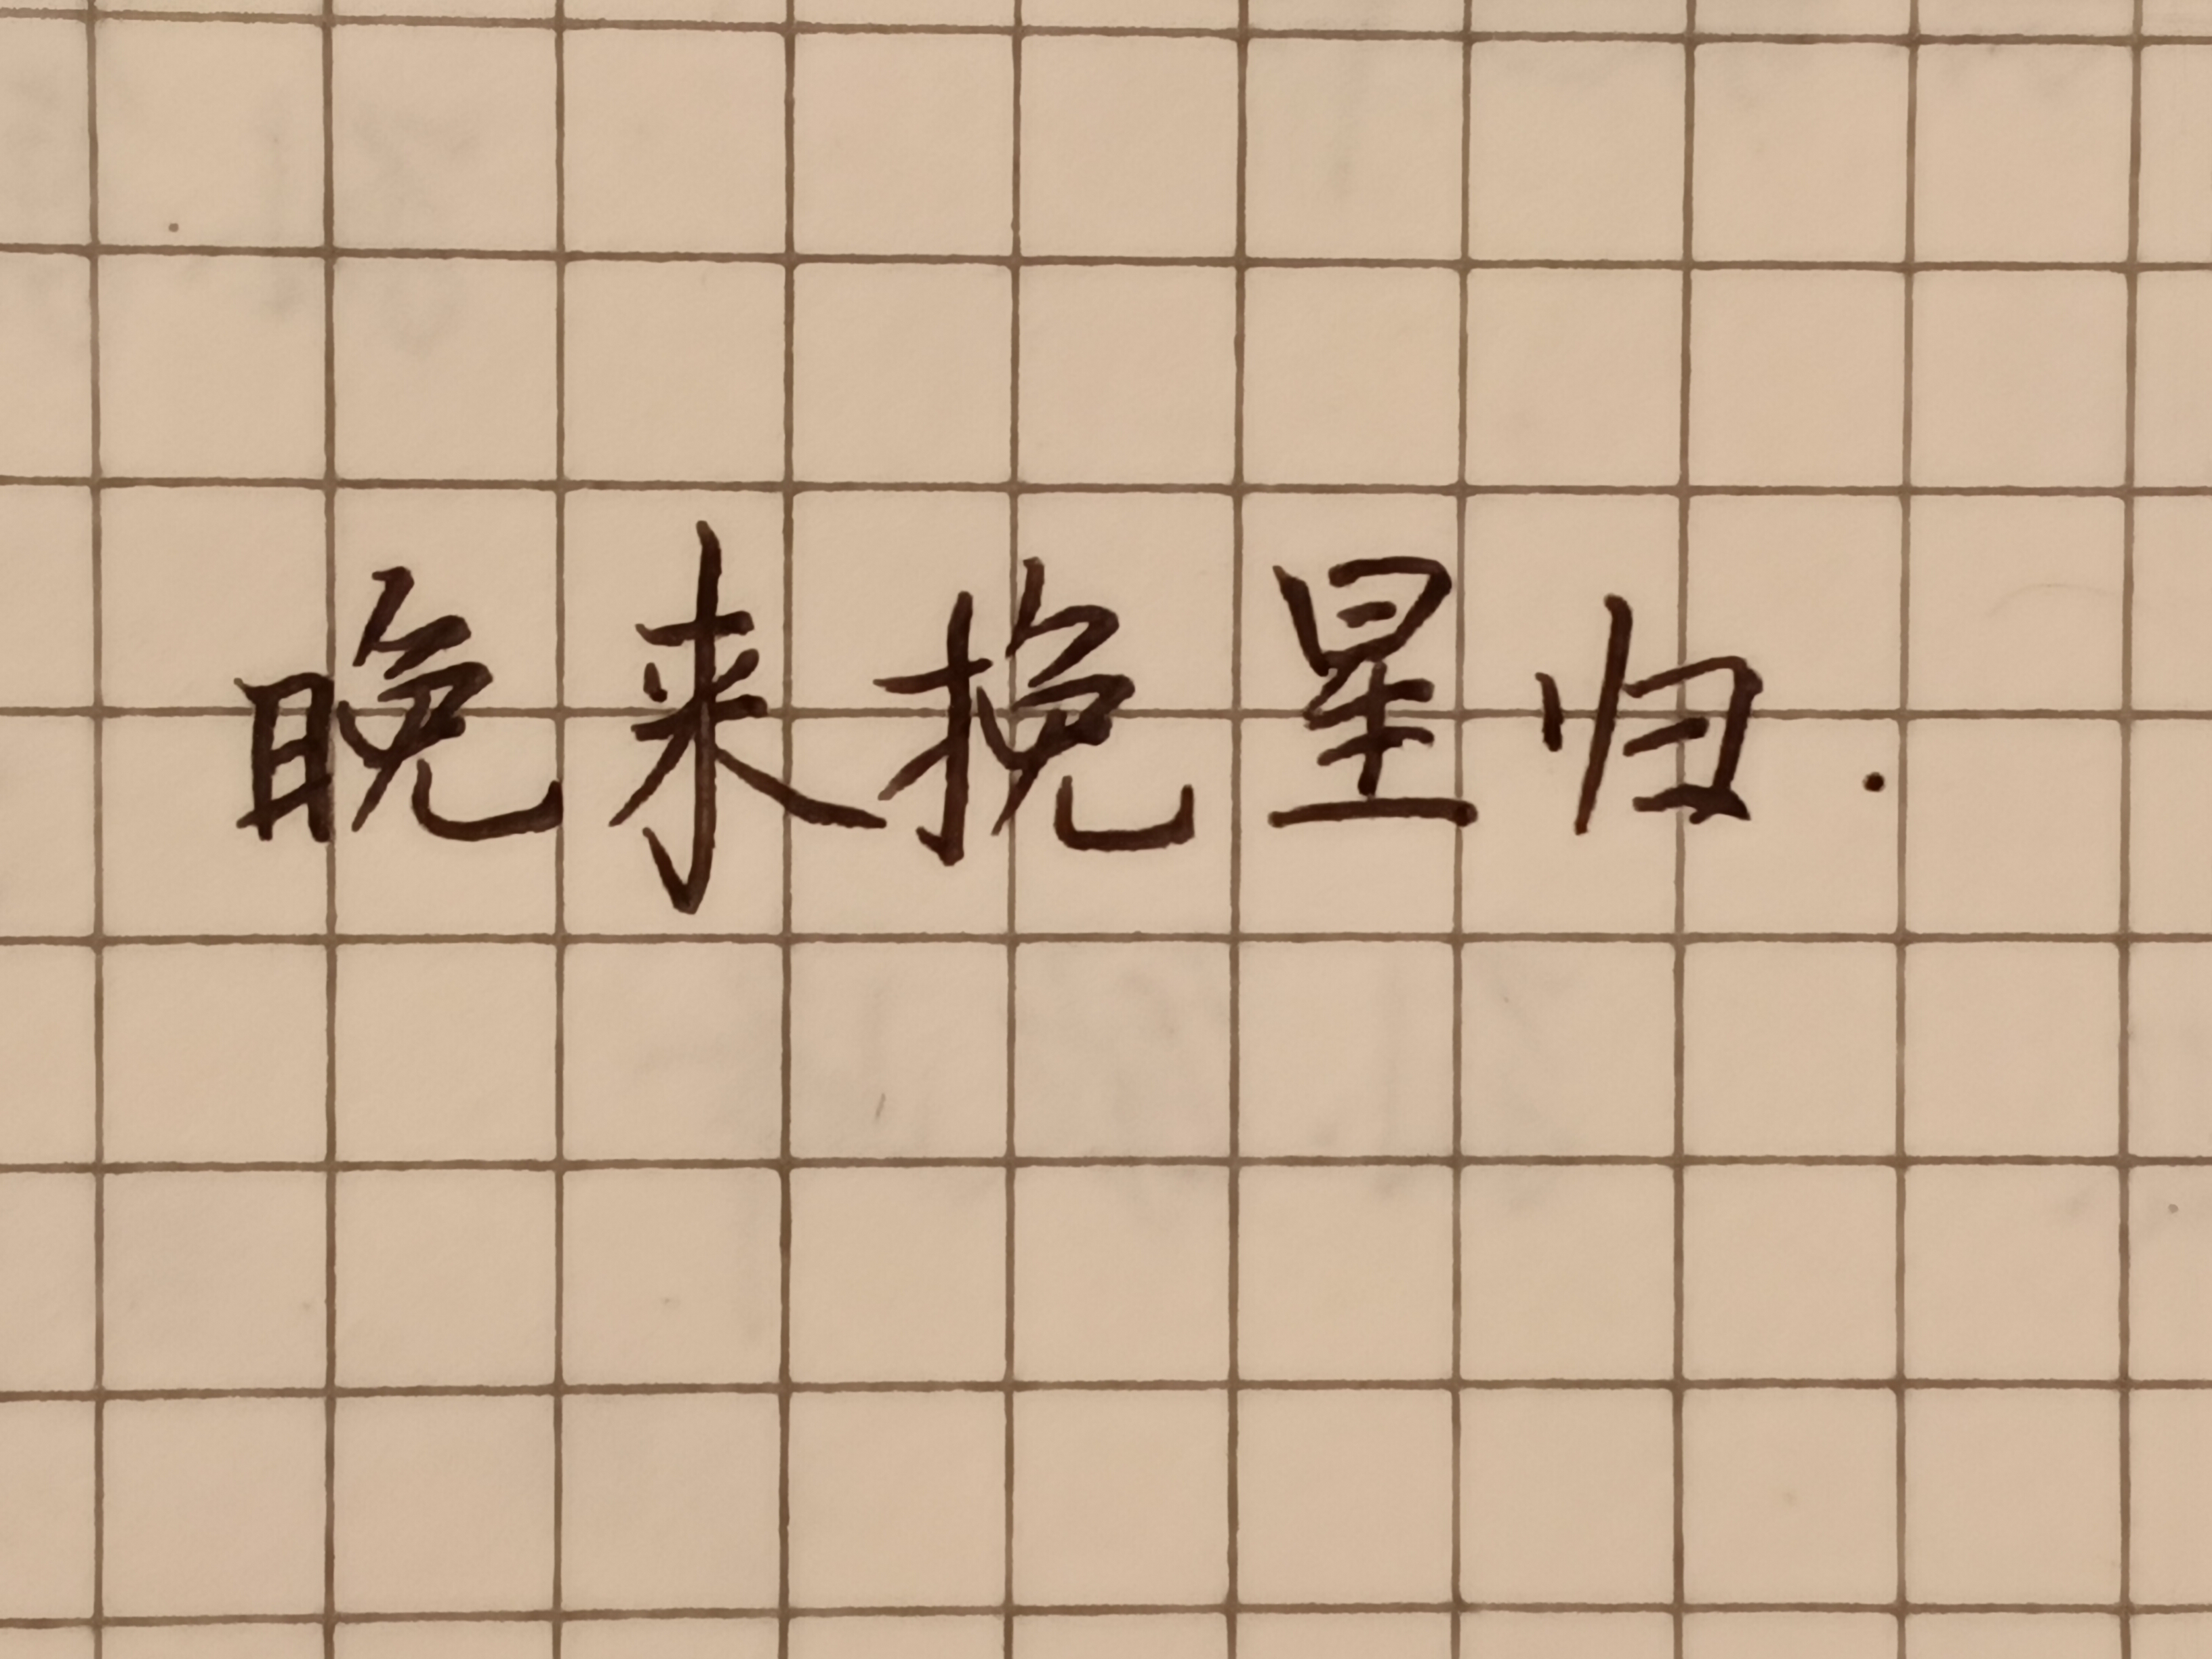 晚来挽星归.